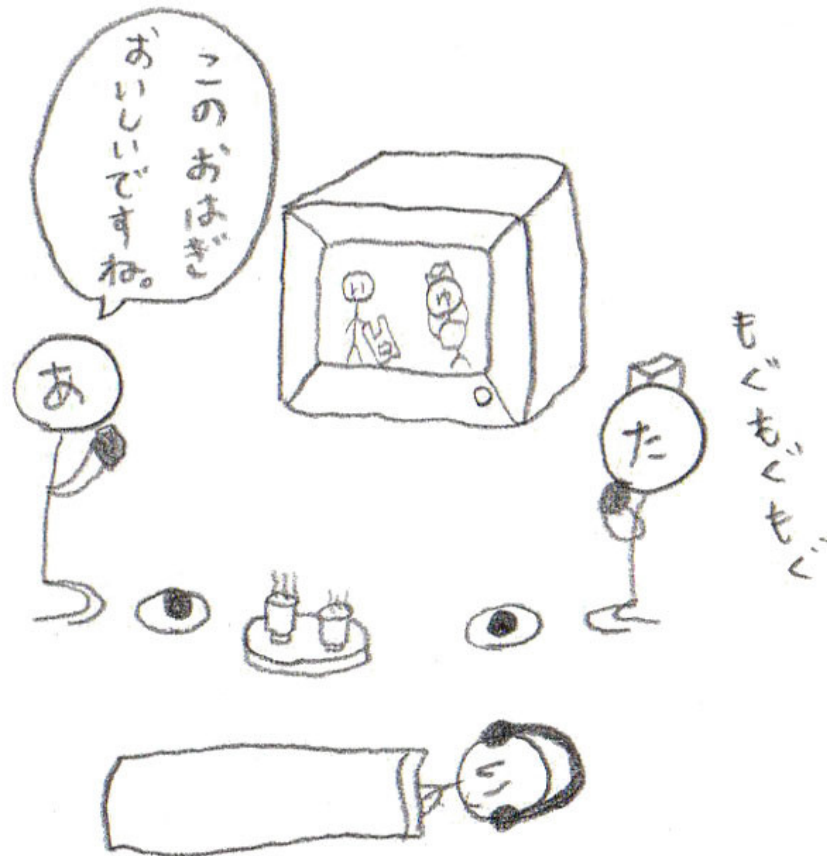 このおはぎ
おいしいですね。
あ
い
ゆ
た
もぐもぐもぐ